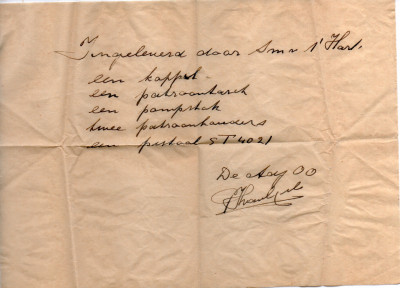 Ingeleverd door Smr 't Hart.
een koppel
een patroontasch
een pompstok
twee patroonhouders
een pistool ST 4021
De a/oo